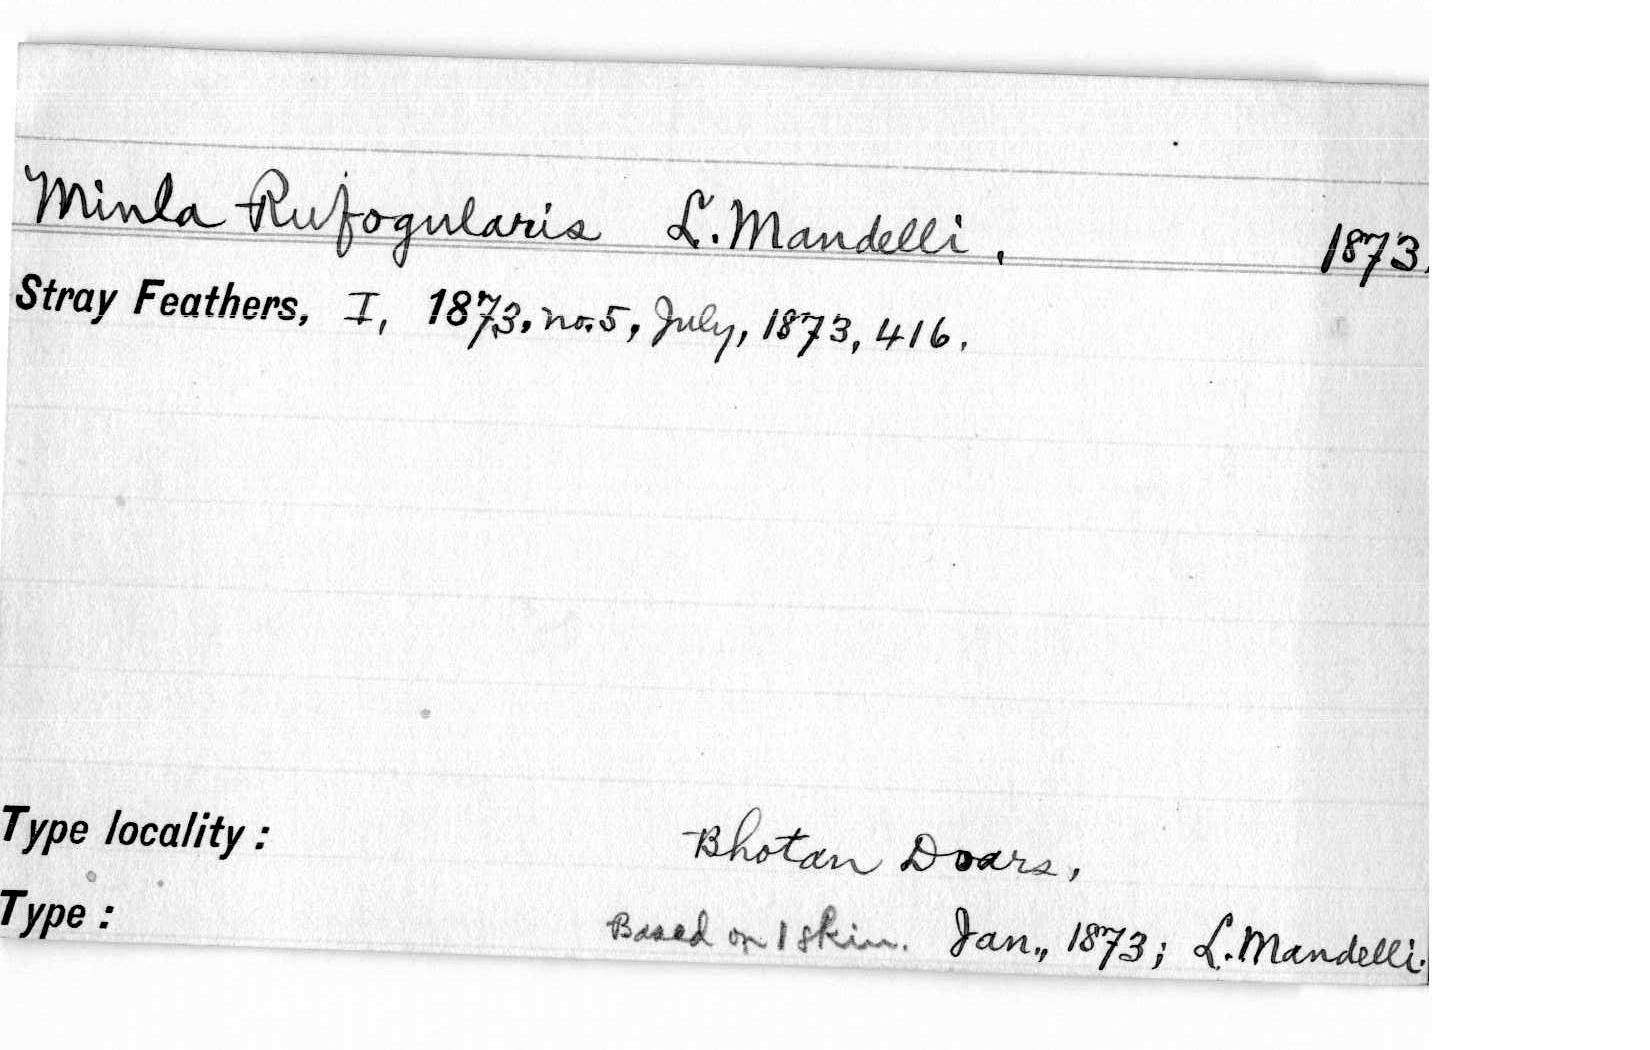 Minla Rufogularis L. Mandelli, 1873.
Stray Feathers, I, 1873, no. 5, July, 1873, 416.
Type locality: Bhotan Doars,
Type: Based on 1 skin. Jan., 1873; L. Mandelli.